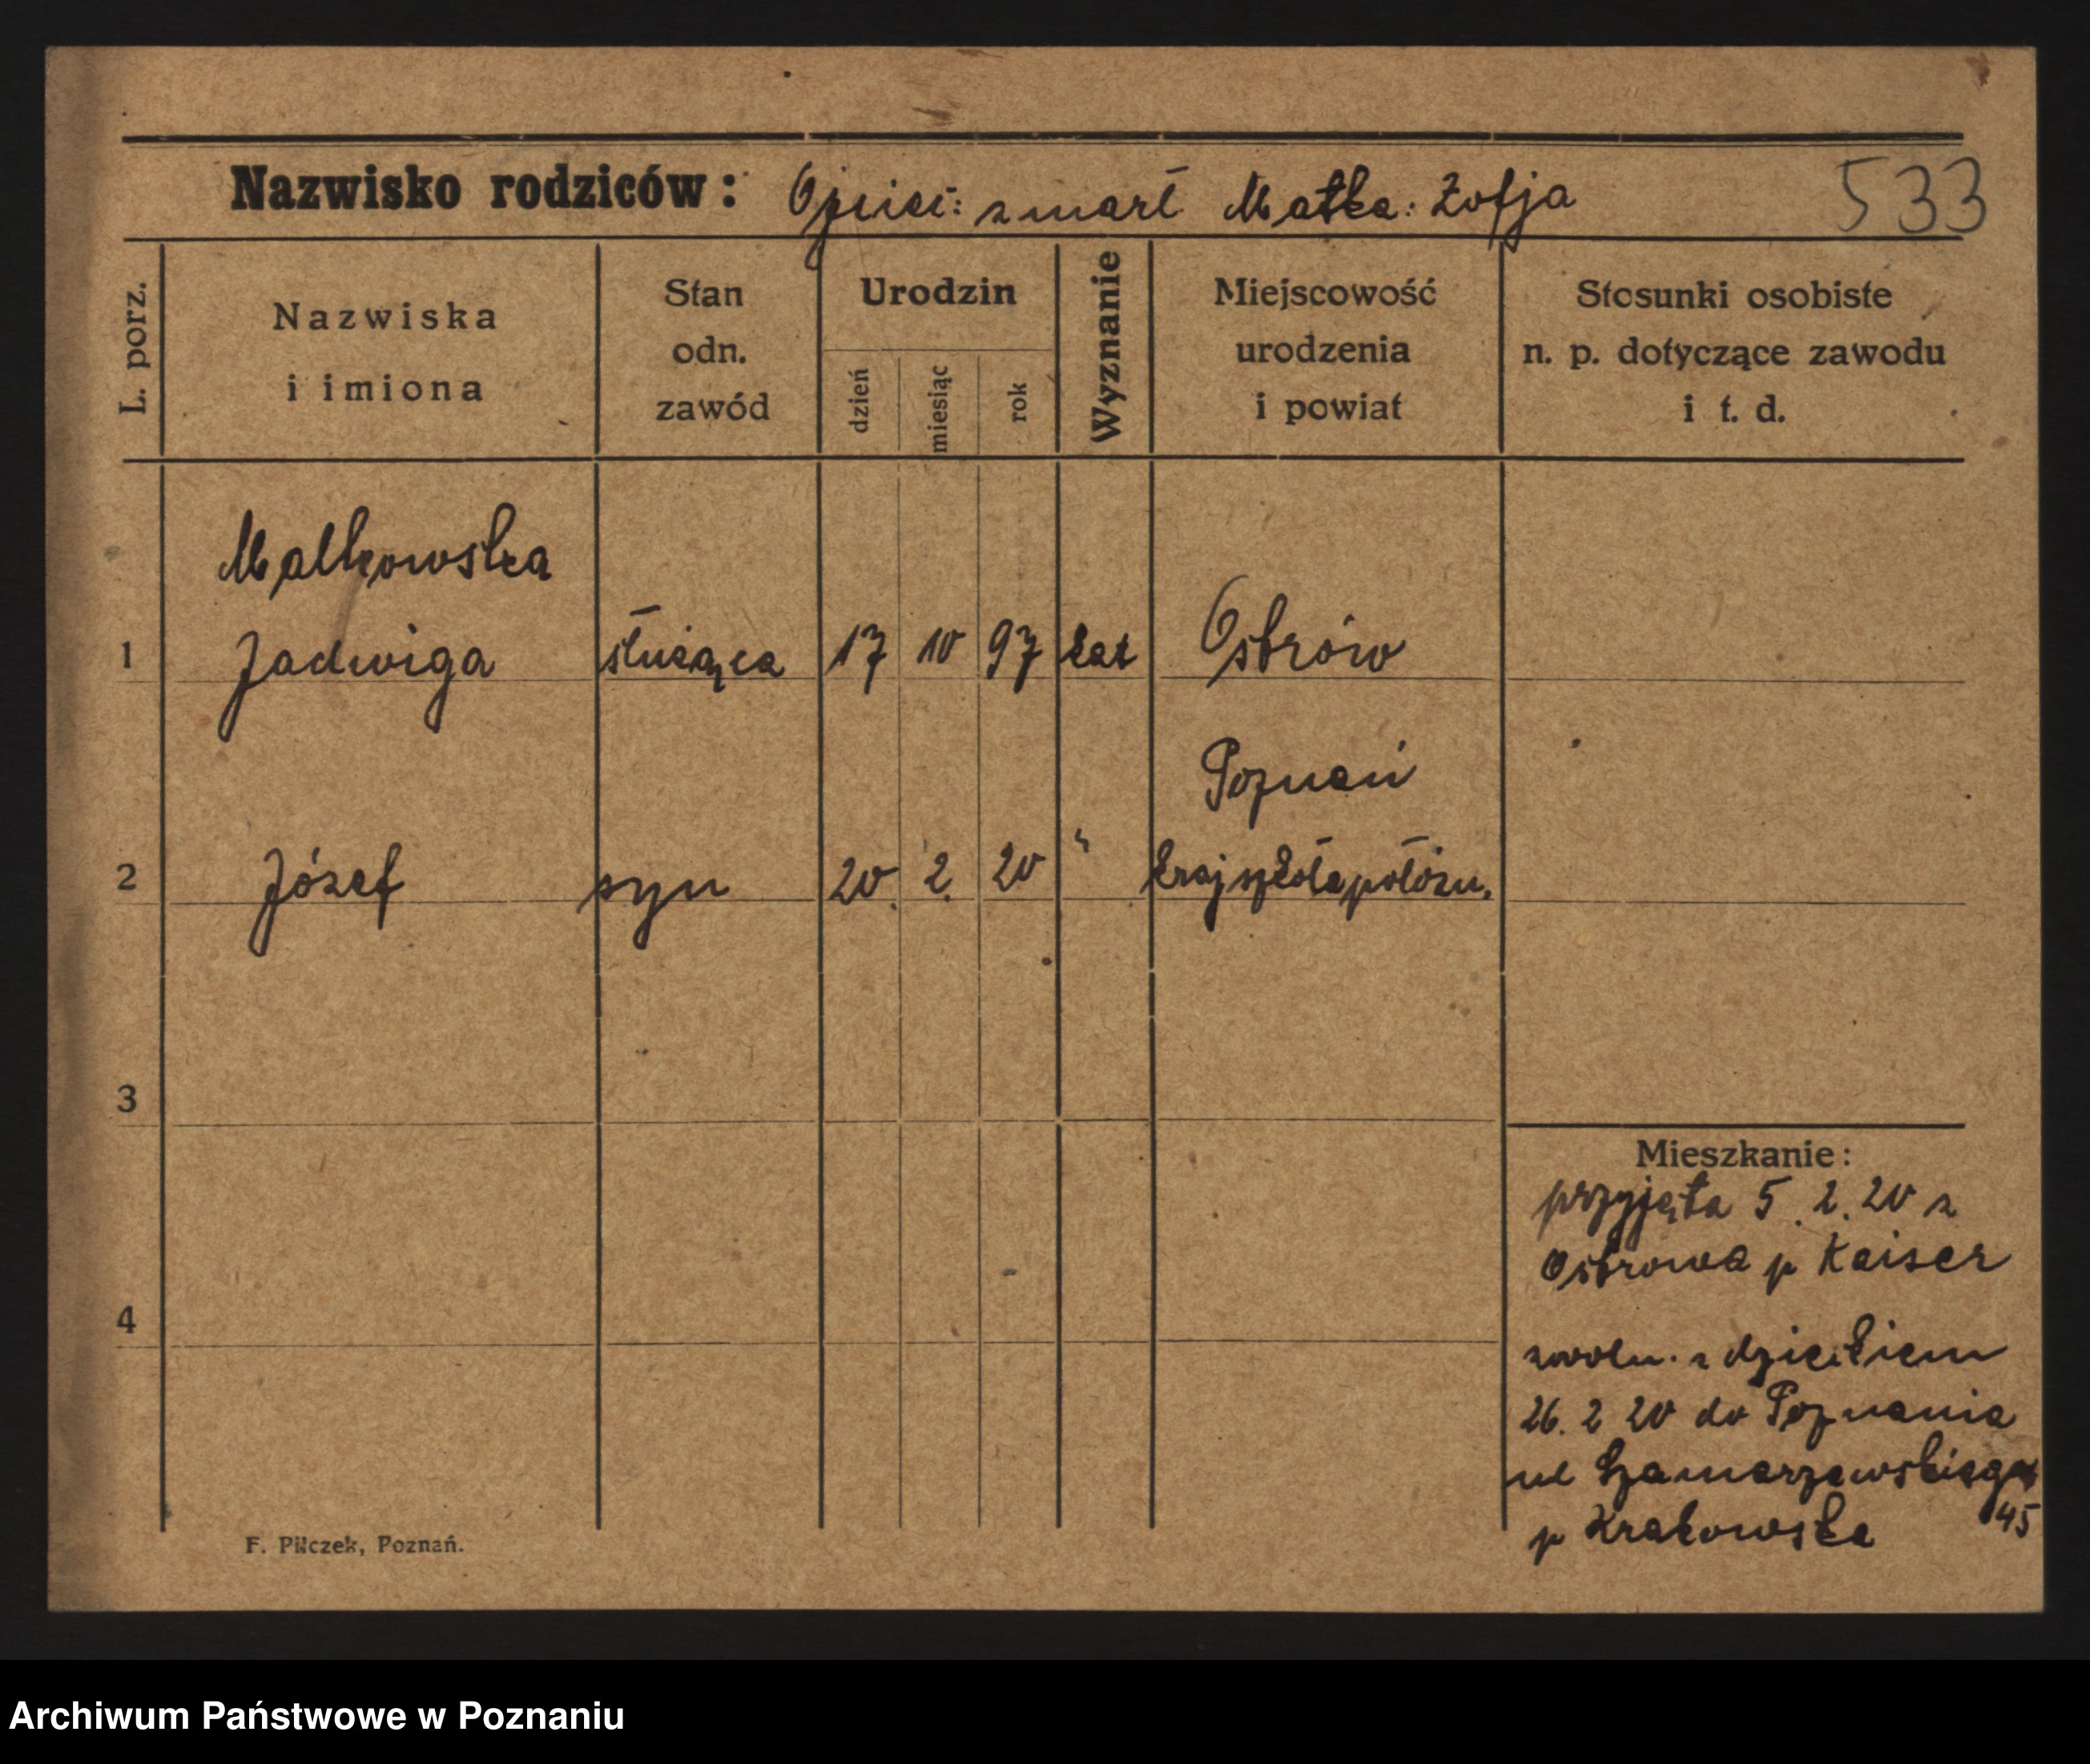 Nazwisko rodziców: Ojciec: zmarł Matka: Zofja 533
L. porz.
Nazwiska
i imiona
Stan
odn.
zawód
Urodzin
dzień
miesiąc
rok
Wyznanie
Miejscowość
urodzenia
i powiat
Stosunki osobiste
n. p. dotyczące zawodu
i t. d.
Malkowska
1 Jadwiga służąca 17 10 97 kat Ostrów
Poznań
2 Józef syn 20. 2. 20 " kraj szkoła położn.
3
4
Mieszkanie:
przyjęta 5. 2. 20 z
Ostrowa p Kaiser
zwoln. z dzieckiem
26. 2 20 do Poznania
ul Szamarzewskiego
45
p Krakowska
F. Pilczek, Poznań.
Archiwum Państwowe w Poznaniu